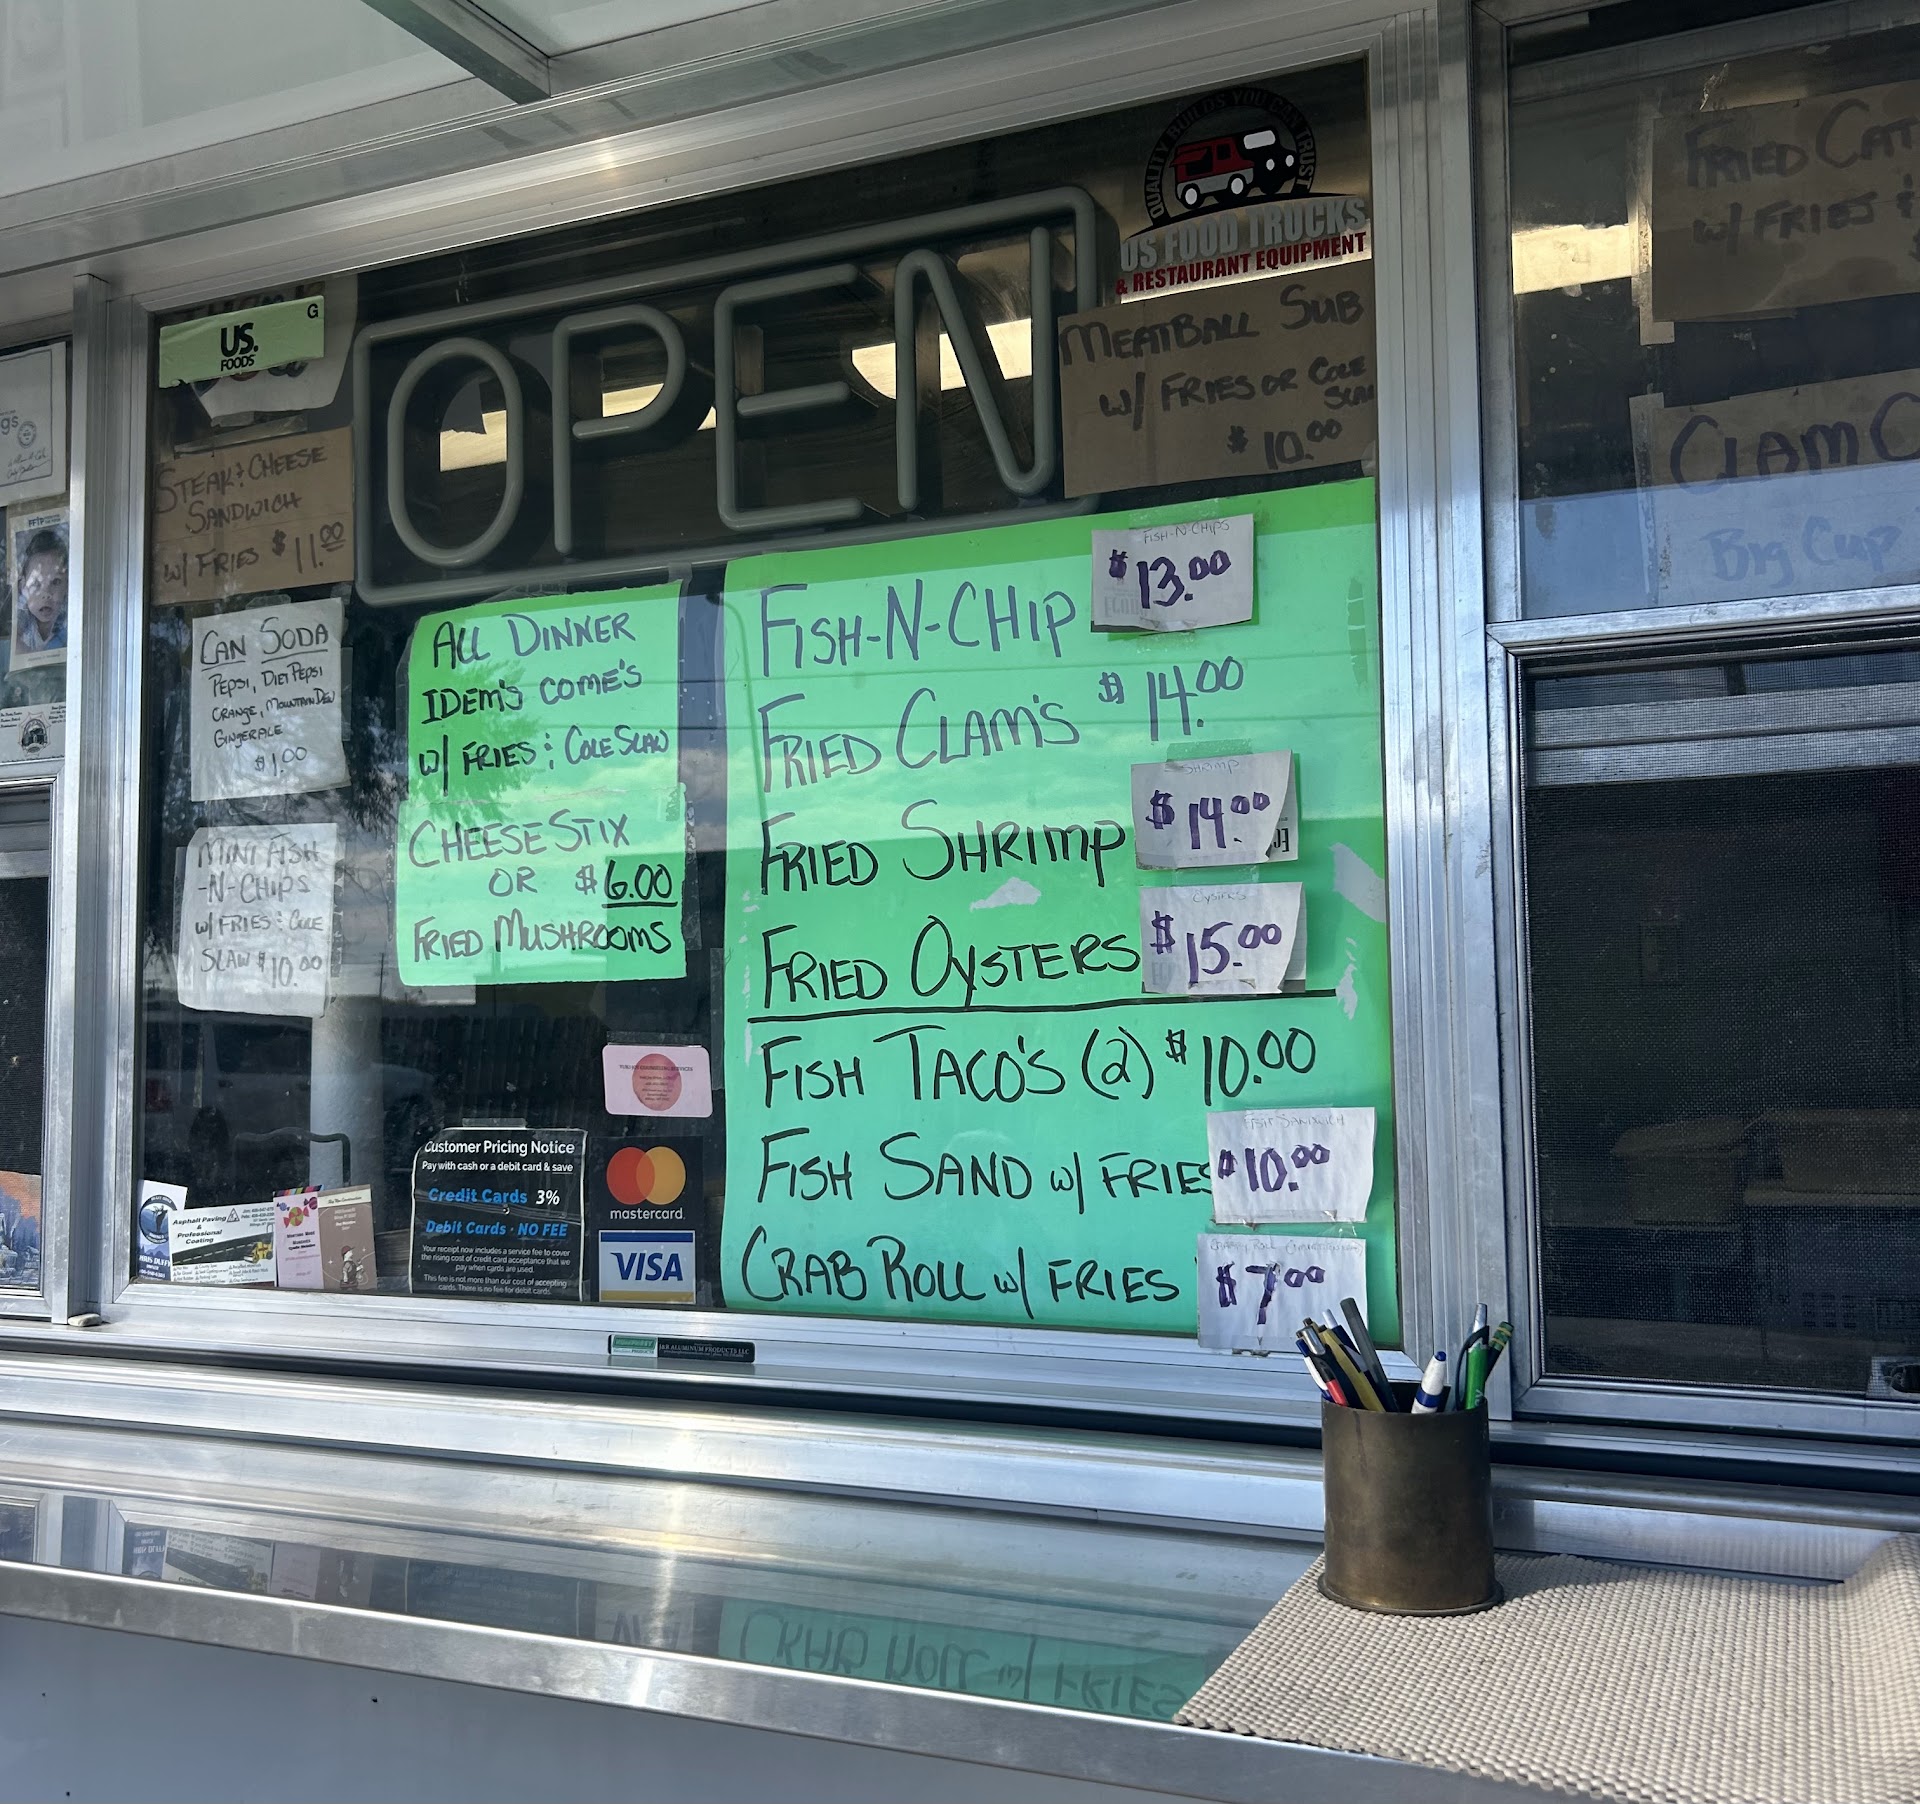 QUALITY BUILDS YOU CAN TRUST
US FOOD TRUCKS
& RESTAURANT EQUIPMENT
G
US.
FOODS
OPEN
MEATBALL SUB
W/ FRIES OR COLE
SLAW
$ 10.00
FRIED CAT
W/ FRIES &
CLAM C
Big Cup
STEAK & CHEESE
SANDWICH
W/ FRIES $11.00
CAN SODA
PEPSI, DIET PEPSI
ORANGE, MOUNTAIN DEW
GINGERALE
$1.00
MINI FISH
-N-CHIPS
W/ FRIES & COLE
SLAW $10.00
ALL DINNER
IDEM'S COME'S
W/ FRIES & COLE SLAW
CHEESE STIX
OR $6.00
FRIED MUSHROOMS
FISH-N-CHIPS
FISH-N-CHIP $13.00
FRIED CLAM'S $14.00
SHRIMP
FRIED SHRIMP $14.00
OYSTERS
FRIED OYSTERS $15.00
FISH TACO'S (2) $10.00
FISH SANDWICH
FISH SAND W/ FRIES $10.00
CRAB ROLL W/ FRIES $7.00
Customer Pricing Notice
Pay with cash or a debit card & save
Credit Cards 3%
Debit Cards - NO FEE
Your receipt now includes a service fee to cover
the rising cost of credit card acceptance that we
pay when cards are used.
This fee is not more than our cost of accepting
cards. There is no fee for debit cards.
mastercard.
VISA
Asphalt Paving
&
Professional
Coating
J&R ALUMINUM PRODUCTS LLC